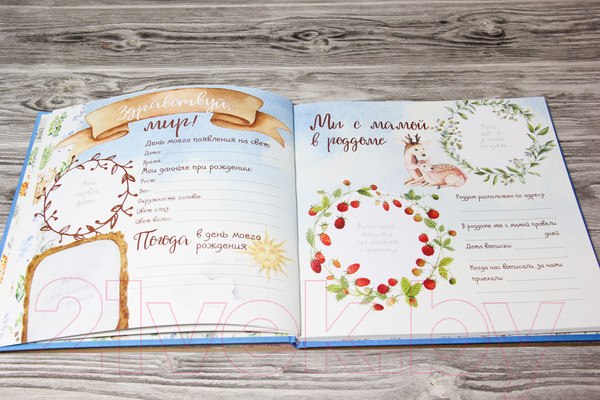 Здравствуй,
мир!
День моего появления на свет:
Дата:
Время:
Мои данные при рождении:
Рост:
Вес:
Окружность головы:
Цвет глаз:
Цвет волос:
Погода в день моего
рождения
Мы с мамой
в роддоме
Роддом расположен по адресу:
В роддоме мы с мамой провели
дней
Дата выписки:
Когда нас выписали, за нами
приехали:
21vek.by